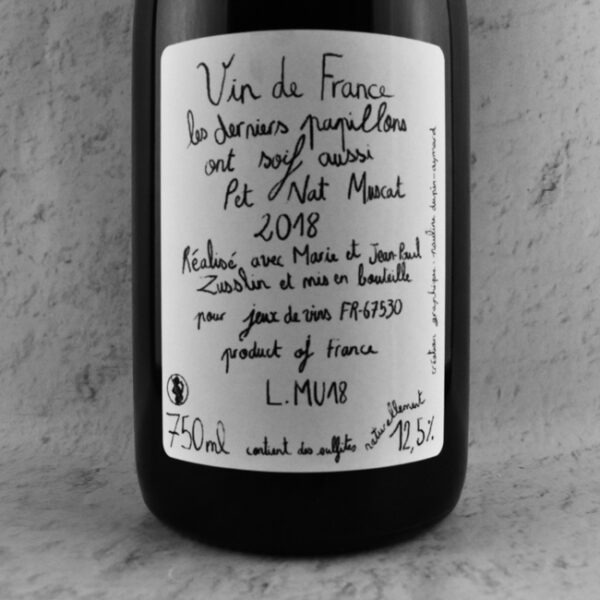 Vin de France
les derniers papillons
ont soif aussi
Pet Nat Muscat
2018
Réalisé avec Marie et Jean-Paul
Zusslin et mis en bouteille
pour jeux de vins FR-67530
product of France
L.MU18
750ml
contient des sulfites naturellement
12,5%
création graphique: pauline dupin-aymard